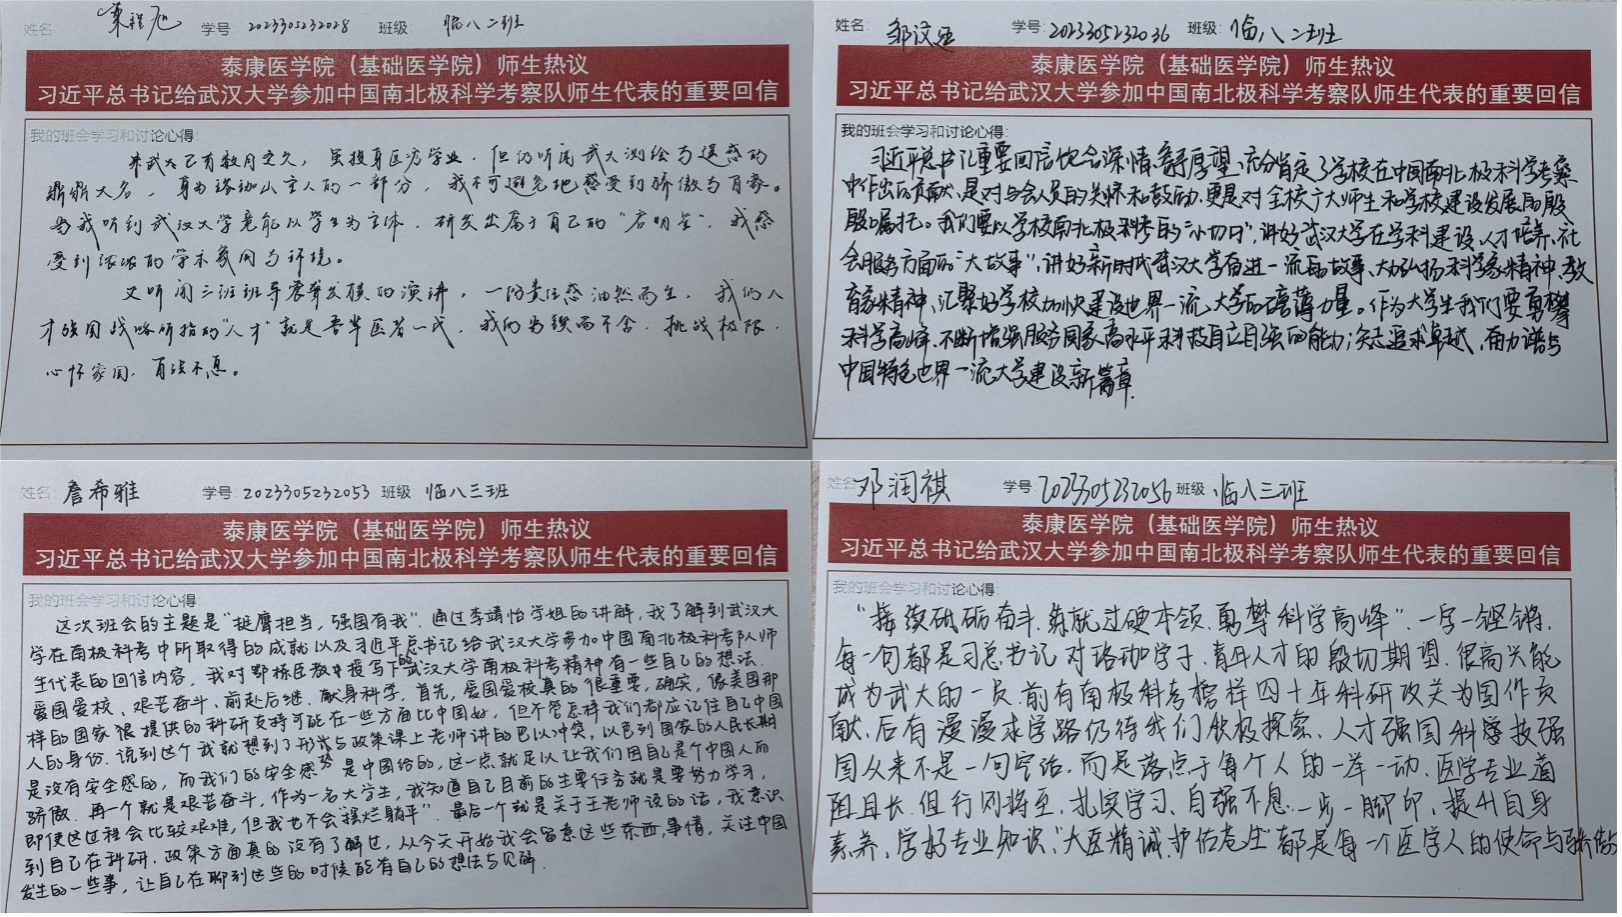 姓名: 学号: 2023305232028 班级: 临八二班
泰康医学院（基础医学院）师生热议
习近平总书记给武汉大学参加中国南北极科学考察队师生代表的重要回信
我的班会学习和讨论心得:
来武大已有数月之久，虽投身医疗学业，但仍听闻武大测绘与遥感的
鼎鼎大名，身为珞珈山主人的一部分，我不可避免地感受到骄傲与自豪。
当我听到武汉大学竟能以学生为主体，研发出属于自己的“启明星”，我感
受到浓浓的学术氛围与环境。
又听闻三班班导震聋发聩的演讲，一阵责任感油然而生，我们人
才强国战略所指的“人才”就是吾辈医者一代，我们当锲而不舍，挑战极限，
心怀家国，自强不息。
姓名: 学号: 2023305232036 班级: 临八二班
泰康医学院（基础医学院）师生热议
习近平总书记给武汉大学参加中国南北极科学考察队师生代表的重要回信
我的班会学习和讨论心得:
习近平总书记重要回信饱含深情、寄予厚望，充分肯定了学校在中国南北极科学考察
中作出的贡献，是对与会人员的关怀和鼓励，更是对全校广大师生和学校建设发展的殷
殷嘱托。我们要以学校南北极科考的“小切口”，讲好武汉大学在学科建设、人才培养、社
会服务方面的“大故事”，讲好新时代武汉大学奋进一流的故事、大力弘扬科学家精神、教
育家精神，汇聚好学校加快建设世界一流大学的磅薄力量。作为大学生我们要勇攀
科学高峰，不断增强服务国家高水平科技自立自强的能力；矢志追求卓越，奋力谱写
中国特色世界一流大学建设新篇章.
姓名: 詹希雅 学号: 2023305232053 班级: 临八三班
泰康医学院（基础医学院）师生热议
习近平总书记给武汉大学参加中国南北极科学考察队师生代表的重要回信
我的班会学习和讨论心得:
这次班会的主题是“挺膺担当，强国有我”. 通过李靖怡学姐的讲解，我了解到武汉大
学在南极科考中所取得的成就以及习近平总书记给武汉大学参加中国南北极科考队师
生代表的回信内容，我对鄂栋臣教授写下的武汉大学南极科考精神有一些自己的想法.
爱国爱校、艰苦奋斗、前赴后继、献身科学，首先，爱国爱校真的很重要，确实，像美国那
样的国家提供的科研支持可能在一些方面比中国好，但不管怎样我们都应记住自己中国
人的身份. 说到这个我就想到了形势与政策课上老师讲的巴以冲突，以色列国家的人民长期
是没有安全感的，而我们的安全感是中国给的，这一点就足以让我们因自己是个中国人而
骄傲. 再一个就是艰苦奋斗，作为一名大学生，我知道自己目前的主要任务就是要努力学习，
即使这过程会比较艰难，但我也不会“摆烂躺平”. 最后一个就是关于王老师说的话，我意识
到自己在科研、政策方面真的没有了解过，从今天开始我会留意这些东西，事情，关注中国
发生的一些事，让自己在聊到这些的时候能有自己的想法与见解.
姓名: 邓润祺 学号: 2023305232056 班级: 临八三班
泰康医学院（基础医学院）师生热议
习近平总书记给武汉大学参加中国南北极科学考察队师生代表的重要回信
我的班会学习和讨论心得:
“接续砥砺奋斗，练就过硬本领，勇攀科学高峰”. 一字一铿锵，
每一句都是习总书记对珞珈学子、青年人才的殷切期望. 很高兴能
成为武大的一员. 前有南极科考榜样四十年科研攻关为国作贡
献，后有漫漫求学路仍待我们积极探索. 人才强国科学技强
国从来不是一句空话，而是落点于每个人的一举一动. 医学专业道
阻且长，但行则将至. 扎实学习、自强不息. 一步一脚印，提升自身
素养，学好专业知识. “大医精诚，护佑苍生”都是每一个医学人的使命与骄傲